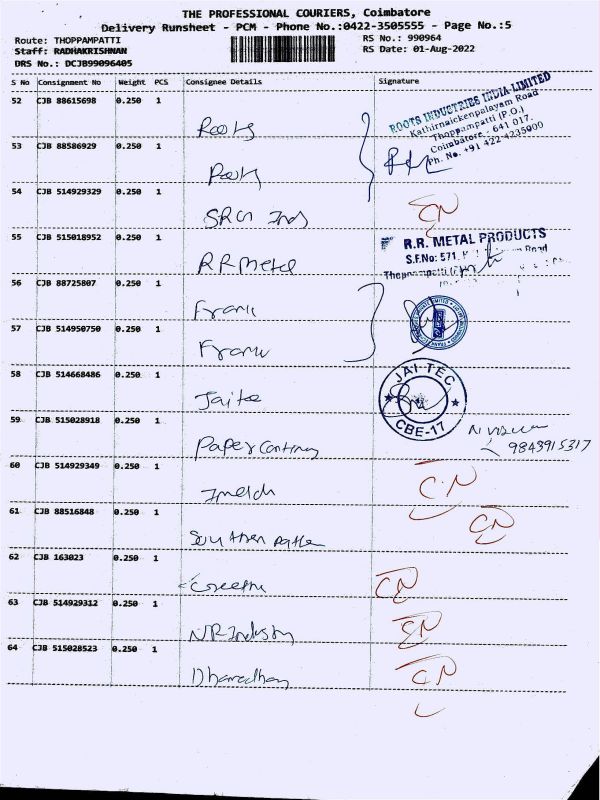 THE PROFESSIONAL COURIERS, Coimbatore
Delivery Runsheet - PCM - Phone No.:0422-3505555 - Page No.:5
Route: THOPPAMPATTI RS No.: 990964
Staff: RADHAKRISHNAN RS Date: 01-Aug-2022
DRS No.: DCJB99096405
S No Consignment No Weight PCS Consignee Details Signature
52 CJB 88615698 0.250 1
Roots
ROOTS INDUSTRIES INDIA LIMITED
Kathirnaickenpalayam Road
Thoppampatti (P.O.)
Coimbatore - 641 017.
Ph. No. +91 422 4235000
53 CJB 88586929 0.250 1
Roots
54 CJB 514929329 0.250 1
SRG Inds
CN
55 CJB 515018952 0.250 1
RR Metal
R.R. METAL PRODUCTS
S.F.No: 571, Road
Thoppampatti
56 CJB 88725807 0.250 1
57 CJB 514950750 0.250 1
58 CJB 514668486 0.250 1
Jaitec
JAI TEC
CBE-17
59 CJB 515028918 0.250 1
Paper
9843915317
60 CJB 514929349 0.250 1
CN
61 CJB 88516848 0.250 1
Southern
CN
62 CJB 163023 0.250 1
CN
63 CJB 514929312 0.250 1
NR Industry
CN
64 CJB 515028523 0.250 1
CN